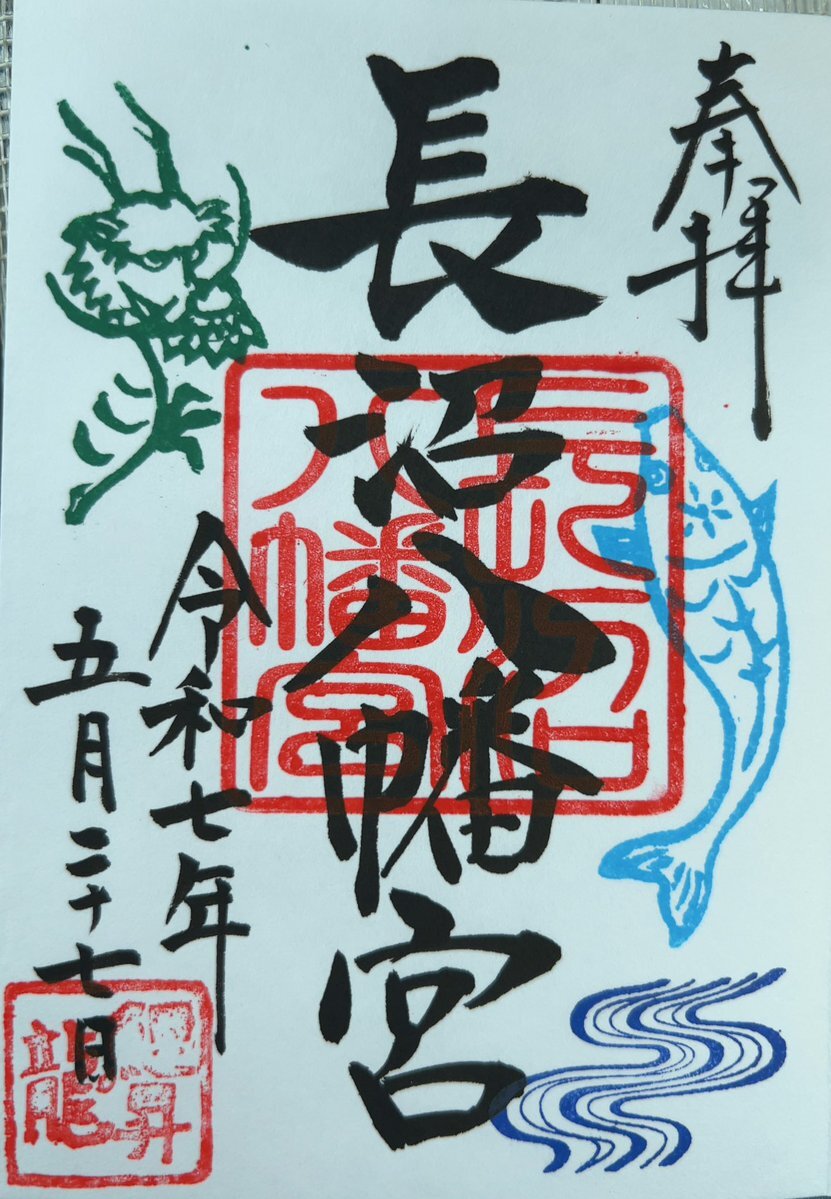 奉拝
長沼八幡宮
長沼八幡宮
令和七年
五月二十七日
鯉昇
龍